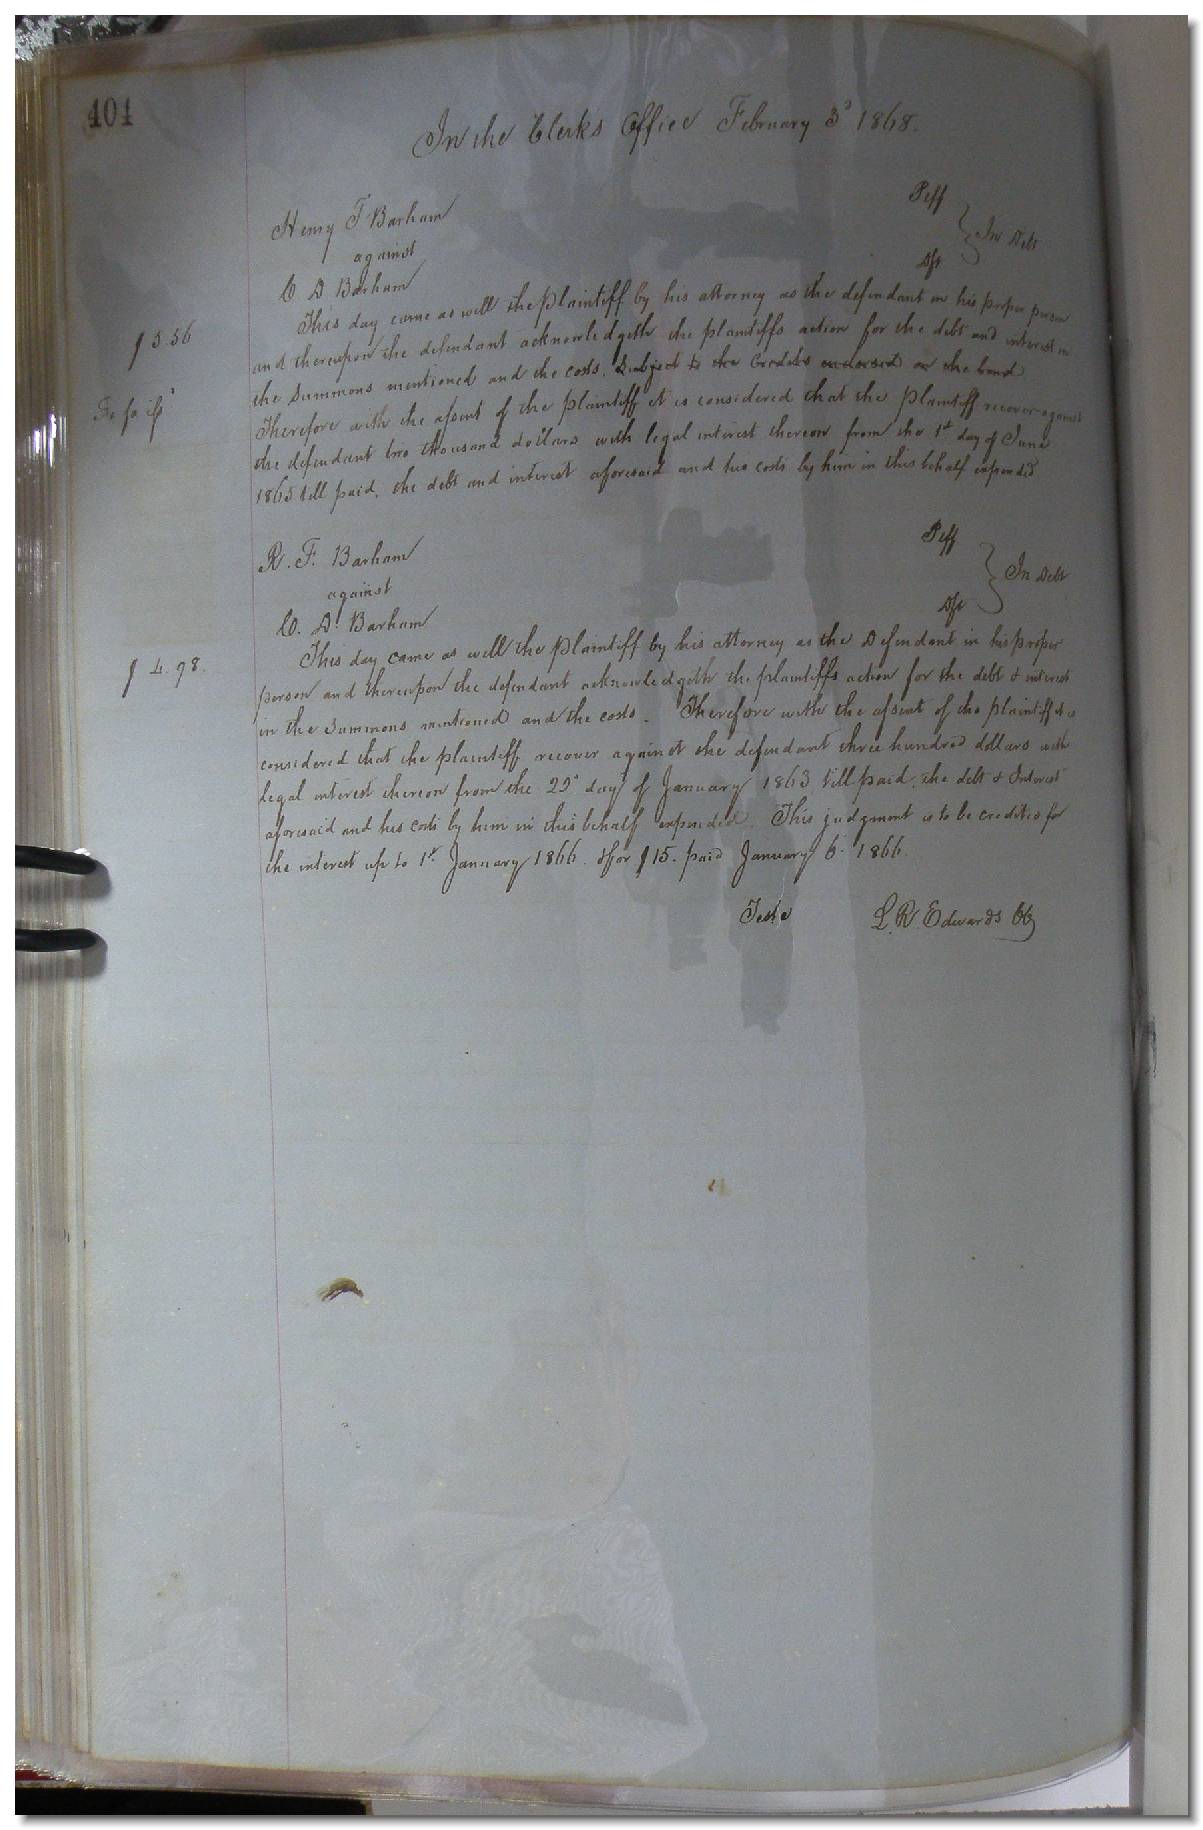 404
In the Clerks Office February 3d 1868.
Henry T Barham Plff
against In Debt
C D Barham Dft
This day came as well the plaintiff by his attorney as the defendant in his proper person
$5.56
and thereupon the defendant acknowledgeth the plaintiffs action for the debt and interest in
the Summons mentioned and the costs. Subject to the Credits endorsed on the bond
Therefore with the assent of the plaintiff it is considered that the plaintiff recover against
the defendant two thousand dollars with legal interest thereon from the 1st day of June
1865 till paid, the debt and interest aforesaid and his costs by him in this behalf expended
R. F. Barham Plff
against In Debt
C. D. Barham Dft
This day came as well the plaintiff by his attorney as the Defendant in his proper
$4.98.
person and thereupon the defendant acknowledgeth the plaintiffs action for the debt & interest
in the Summons mentioned and the costs. Therefore with the assent of the plaintiff it is
considered that the plaintiff recover against the defendant three hundred dollars with
legal interest thereon from the day of January 1863 till paid, the debt & Interest
aforesaid and his costs by him in this behalf expended. This judgment is to be credited for
the interest up to 1st January 1866. & for $15. paid January 6. 1866.
Teste L. R. Edwards